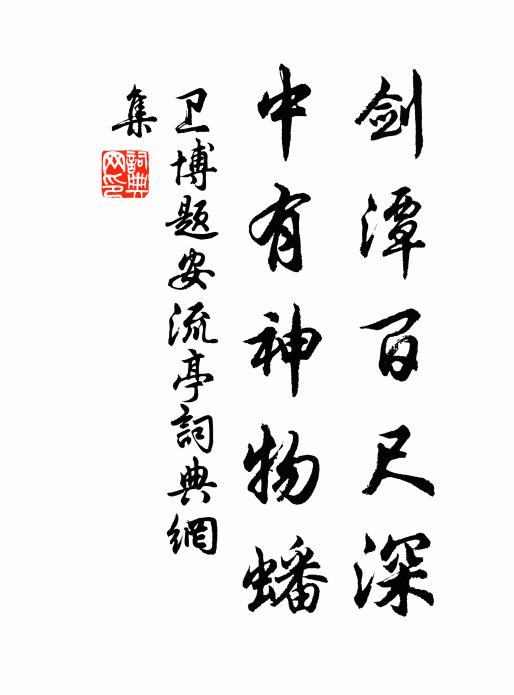 剑潭百尺深
中有神物蟠
卫博题安流亭詞典網
集
詞典网印